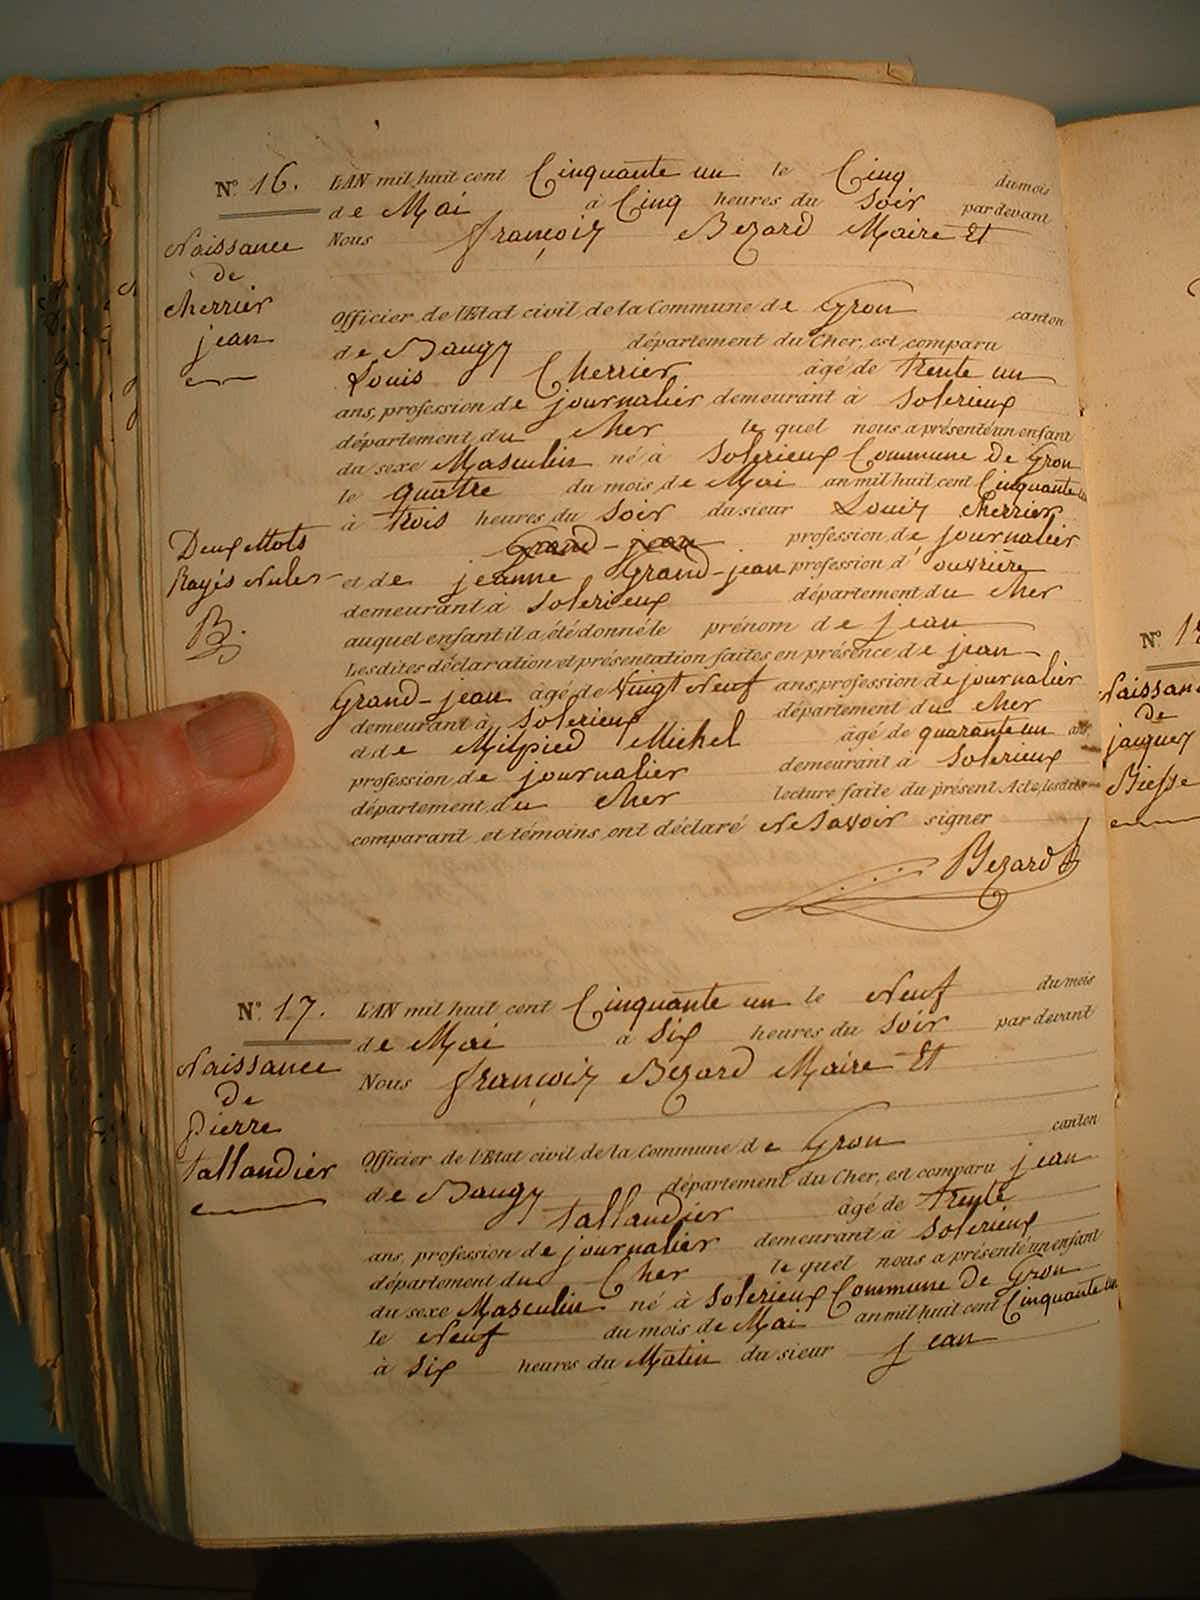 N° 16. L'AN mil huit cent Cinquante un le Cinq du mois
de Mai à Cinq heures du Soir par devant
Nous françois Bezard Maire Et
Naissance
de
Cherrier
jean
Officier de l'Etat civil de la Commune de Gron canton
de Baugy département du Cher, est comparu
Louis Cherrier âgé de trente un
ans, profession de journalier demeurant à Solerieux
département du Cher le quel nous a présenté un enfant
du sexe Masculin né à Solerieux Commune de Gron
le quatre du mois de Mai an mil huit cent Cinquante un
à trois heures du Soir du sieur Louis Cherrier
Grand-jean profession de journalier
Deux Mots
Rayés Nules
B.
et de jeanne Grand-jean profession d'ouvrière
demeurant à Solerieux département du Cher
auquel enfant il a été donné le prénom de jean
Les dites déclaration et présentation faites en présence de jean
Grand-jean âgé de Vingt Neuf ans, profession de journalier
demeurant à Solerieux département du Cher
et de Milpied Michel âgé de quarante un ans,
profession de journalier demeurant à Solerieux
département du Cher lecture faite du présent Acte, lesdits
comparant et témoins ont déclaré Ne Savoir signer
Bezard
N° 17. L'AN mil huit cent Cinquante un le Neuf du mois
de Mai à Six heures du Soir par devant
Nous françois Bezard Maire Et
Naissance
de
pierre
tallandier
Officier de l'Etat civil de la Commune de Gron canton
de Baugy département du Cher, est comparu jean
tallandier âgé de trente
ans, profession de journalier demeurant à Solerieux
département du Cher le quel nous a présenté un enfant
du sexe Masculin né à Solerieux Commune de Gron
le Neuf du mois de Mai an mil huit cent Cinquante un
à Six heures du Matin du sieur jean
N° 1
Naissan
de
jacques
Biesse